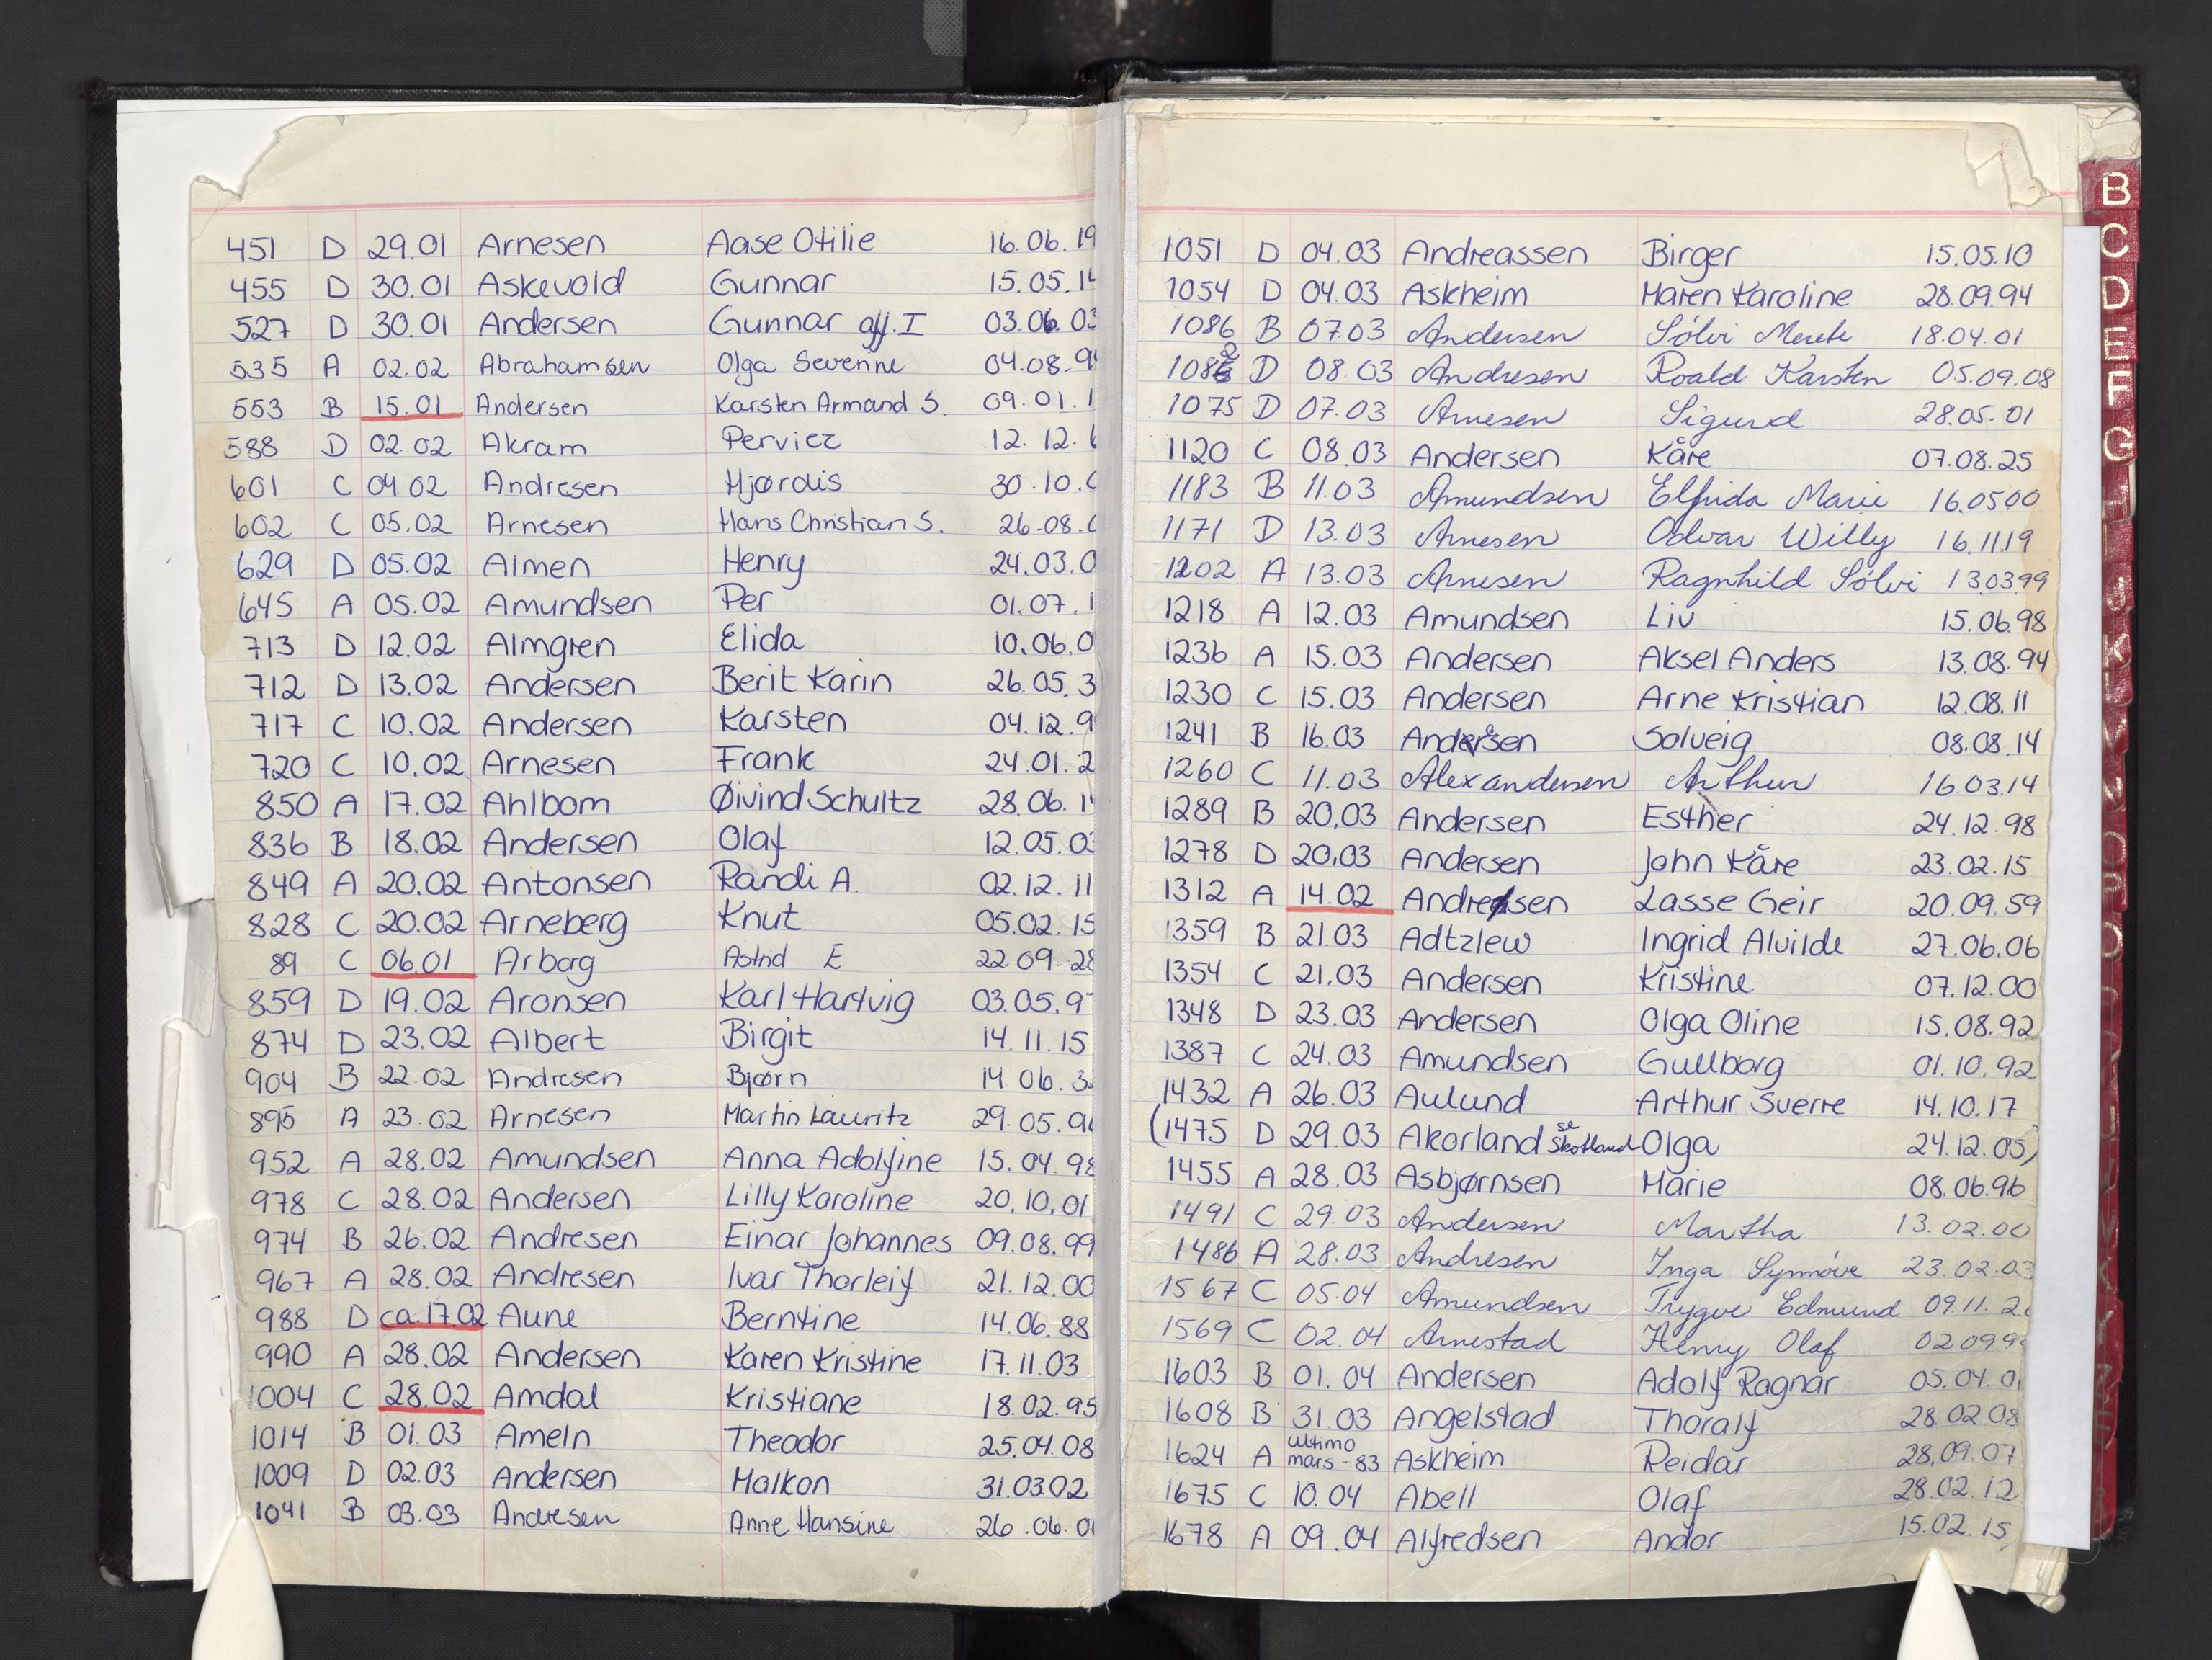 451 D 29.01 Arnesen Aase Otilie 16.06.19
455 D 30.01 Askevold Gunnar 15.05.14
527 D 30.01 Andersen Gunnar aff. I 03.06.03
535 A 02.02 Abrahamsen Olga Severine 04.08.9
553 B 15.01 Andersen Karsten Armand S. 09.01.1
588 D 02.02 Akram Perviez 12.12.
601 C 04.02 Andresen Hjørdis 30.10.0
602 C 05.02 Arnesen Hans Christian S. 26.08.0
629 D 05.02 Almen Henry 24.03.0
645 A 05.02 Amundsen Per 01.07.1
713 D 12.02 Almgren Elida 10.06.0
712 D 13.02 Andersen Berit Karin 26.05.3
717 C 10.02 Andersen Karsten 04.12.9
720 C 10.02 Arnesen Frank 24.01.2
850 A 17.02 Ahlbom Øivind Schultz 28.06.14
836 B 18.02 Andersen Olaf 12.05.03
849 A 20.02 Antonsen Randi A. 02.12.11
828 C 20.02 Arneberg Knut 05.02.15
89 C 06.01 Arborg Astrid E 22.09.28
859 D 19.02 Aronsen Karl Hartvig 03.05.97
874 D 23.02 Albert Birgit 14.11.15
904 B 22.02 Andresen Bjørn 14.06.3
895 A 23.02 Arnesen Martin Lauritz 29.05.9
952 A 28.02 Amundsen Anna Adolfine 15.04.98
978 C 28.02 Andersen Lilly Karoline 20.10.01
974 B 26.02 Andresen Einar Johannes 09.08.99
967 A 28.02 Andresen Ivar Thorleif 21.12.00
988 D ca.17.02 Aune Berntine 14.06.88
990 A 28.02 Andersen Karen Kristine 17.11.03
1004 C 28.02 Amdal Kristiane 18.02.95
1014 B 01.03 Ameln Theodor 25.04.08
1009 D 02.03 Andersen Halkon 31.03.02
1041 B 03.03 Andresen Anne Hansine 26.06.01
1051 D 04.03 Andreassen Birger 15.05.10
1054 D 04.03 Askheim Maren Karoline 28.09.94
1086 B 07.03 Andersen Sölvi Merete 18.04.01
1082 D 08.03 Andresen Roald Karsten 05.09.08
1075 D 07.03 Arnesen Sigurd 28.05.01
1120 C 08.03 Andersen Kåre 07.08.25
1183 B 11.03 Amundsen Elfrida Marie 16.05.00
1171 D 13.03 Arnesen Odvar Willy 16.11.19
1202 A 13.03 Arnesen Ragnhild Sölvi 13.03.99
1218 A 12.03 Amundsen Liv 15.06.98
1236 A 15.03 Andersen Aksel Anders 13.08.94
1230 C 15.03 Andersen Arne Kristian 12.08.11
1241 B 16.03 Andersen Solveig 08.08.14
1260 C 11.03 Alexandersen Arthur 16.03.14
1289 B 20.03 Andersen Esther 24.12.98
1278 D 20.03 Andersen John Kåre 23.02.15
1312 A 14.02 Andresen Lasse Geir 20.09.59
1359 B 21.03 Adtzlew Ingrid Alvilde 27.06.06
1354 C 21.03 Andersen Kristine 07.12.00
1348 D 23.03 Andersen Olga Oline 15.08.92
1387 C 24.03 Amundsen Gullborg 01.10.92
1432 A 26.03 Aulund Arthur Sverre 14.10.17
(1475 D 29.03 Akorland se Skotland Olga 24.12.05)
1455 A 28.03 Asbjørnsen Marie 08.06.96
1491 C 29.03 Andersen Martha 13.02.00
1486 A 28.03 Andresen Inga Synnöve 23.02.03
1567 C 05.04 Amundsen Trygve Edmund 09.11.2
1569 C 02.04 Arnestad Henny Olaf 02.09.9
1603 B 01.04 Andersen Adolf Ragnar 05.04.0
1608 B 31.03 Angelstad Thoralf 28.02.08
1624 A ultimo mars-83 Askheim Reidar 28.09.07
1675 C 10.04 Abell Olaf 28.02.12
1678 A 09.04 Alfredsen Andor 15.02.15
B
C
D
E
F
G
H
J
K